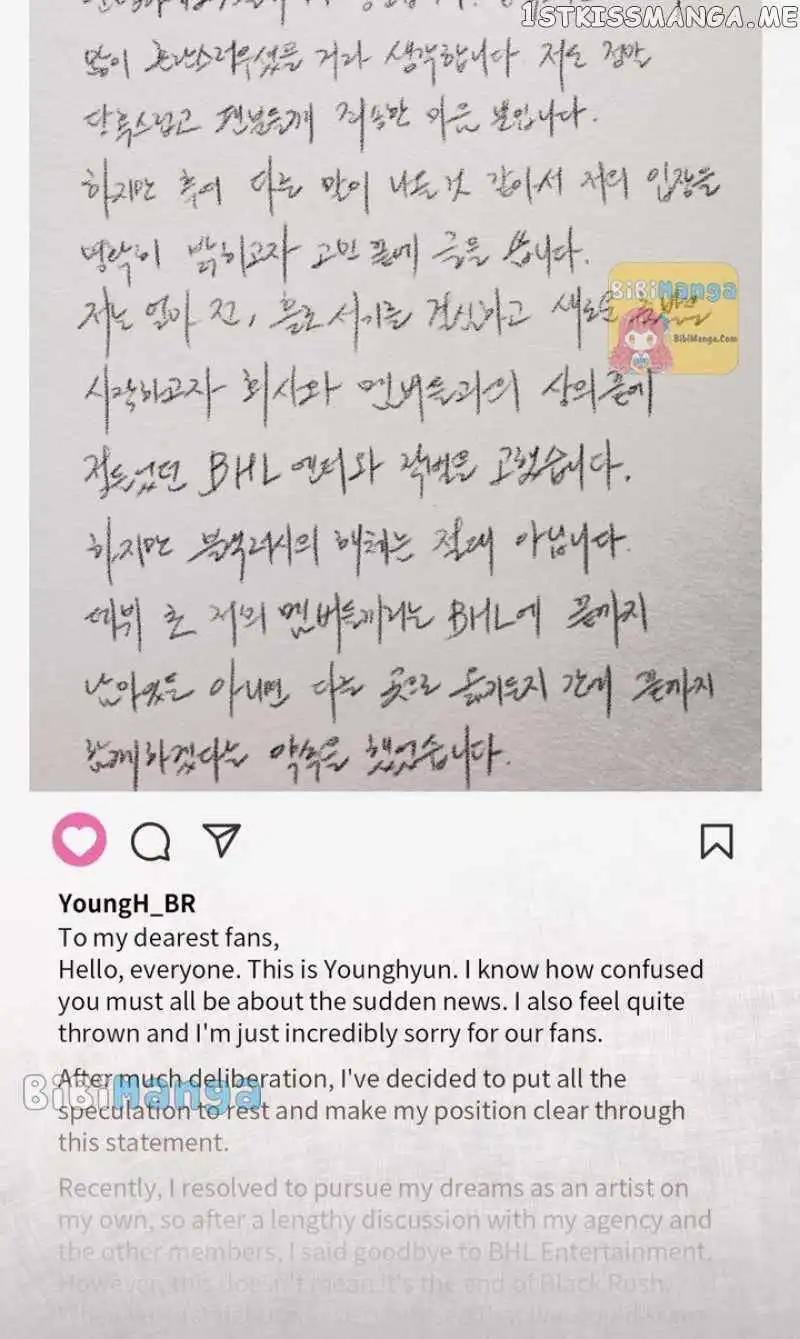 1STKISSMANGA.ME
많이 혼란스러우셨을 거라 생각합니다 저도 정말
당혹스럽고 팬분들께 죄송한 마음 뿐입니다.
하지만 혹여 다른 말이 나올것 같아서 저의 입장을
명확히 밝히고자 고민 끝에 글을 씁니다.
BiBiManga
BibiManga.Com
저는 얼마 전, 홀로서기를 결심하고 새로운
시작하고자 회사와 멤버들과의 상의끝에
정들었던 BHL 엔터와 작별을 고했습니다.
하지만 블랙러시의 해체는 절대 아닙니다.
데뷔 초 저의 멤버들끼리는 BHL에 끝까지
남아있든 아니면 다른 곳으로 옮기든지 간에 끝까지
함께하겠다는 약속을 했었습니다.
YoungH_BR
To my dearest fans,
Hello, everyone. This is Younghyun. I know how confused
you must all be about the sudden news. I also feel quite
thrown and I'm just incredibly sorry for our fans.
After much deliberation, I've decided to put all the
BiBiManga
speculation to rest and make my position clear through
this statement.
Recently, I resolved to pursue my dreams as an artist on
my own, so after a lengthy discussion with my agency and
the other members, I said goodbye to BHL Entertainment.
However, this doesn't mean it's the end of Black Rush.